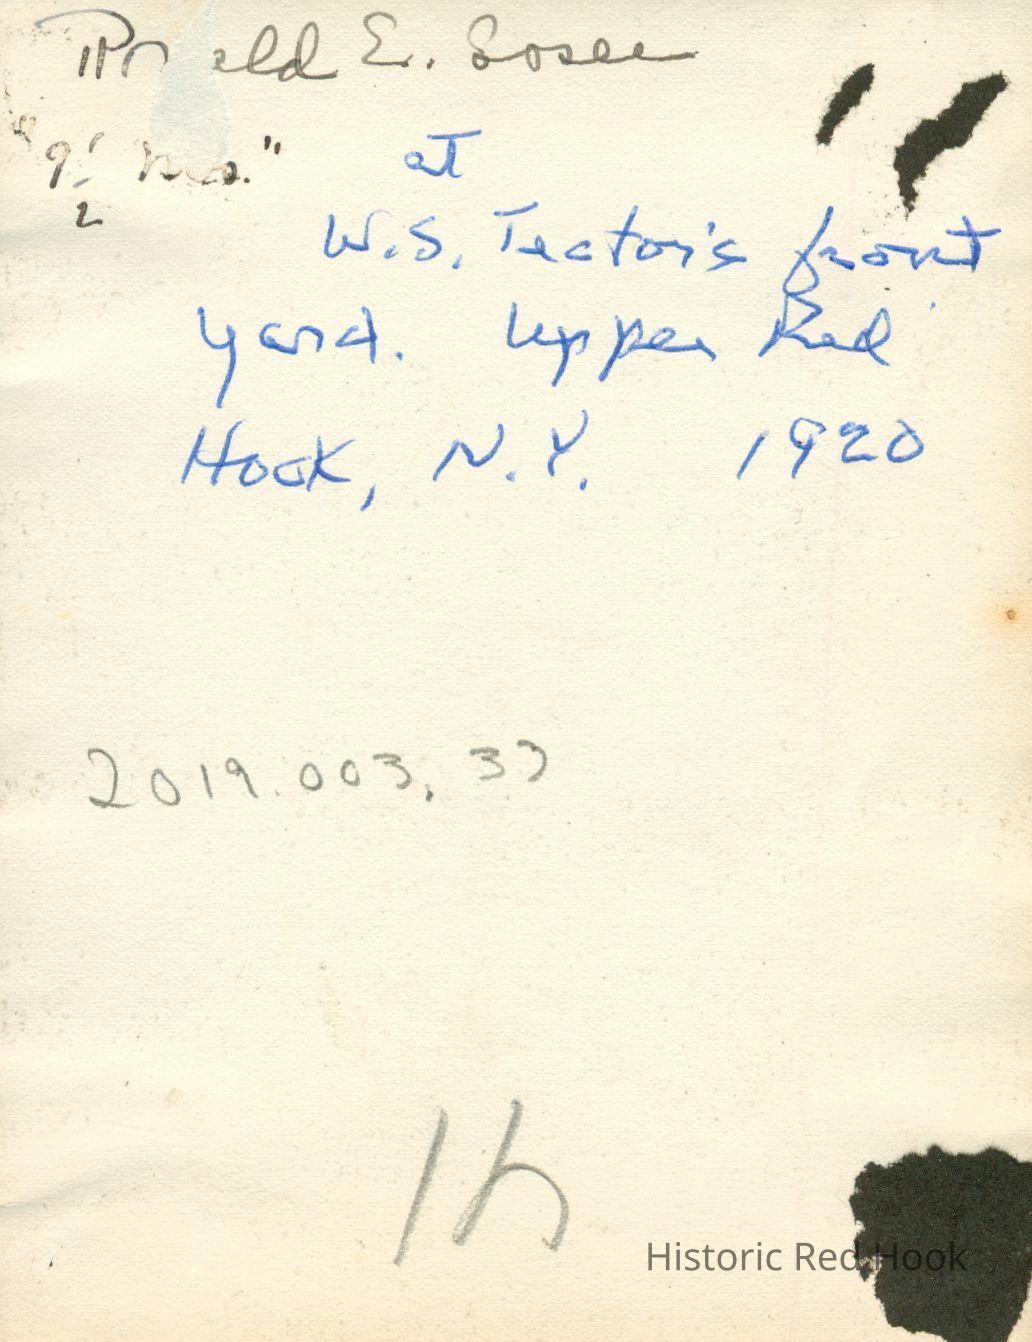 E. Losee
"9 1/2 mo."
at
W.S. Teator's front
yard. Upper Red
Hook, N.Y. 1920
2019.003.37
Historic Red Hook